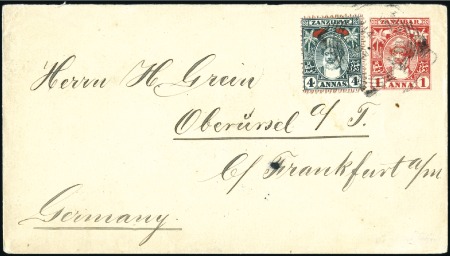 ZANZIBAR
4 ANNAS 4
ZANZIBAR
1 ANNA 1
Herrn H Grein
Oberürsel a/T.
C/ Frankfurt a/m
Germany.